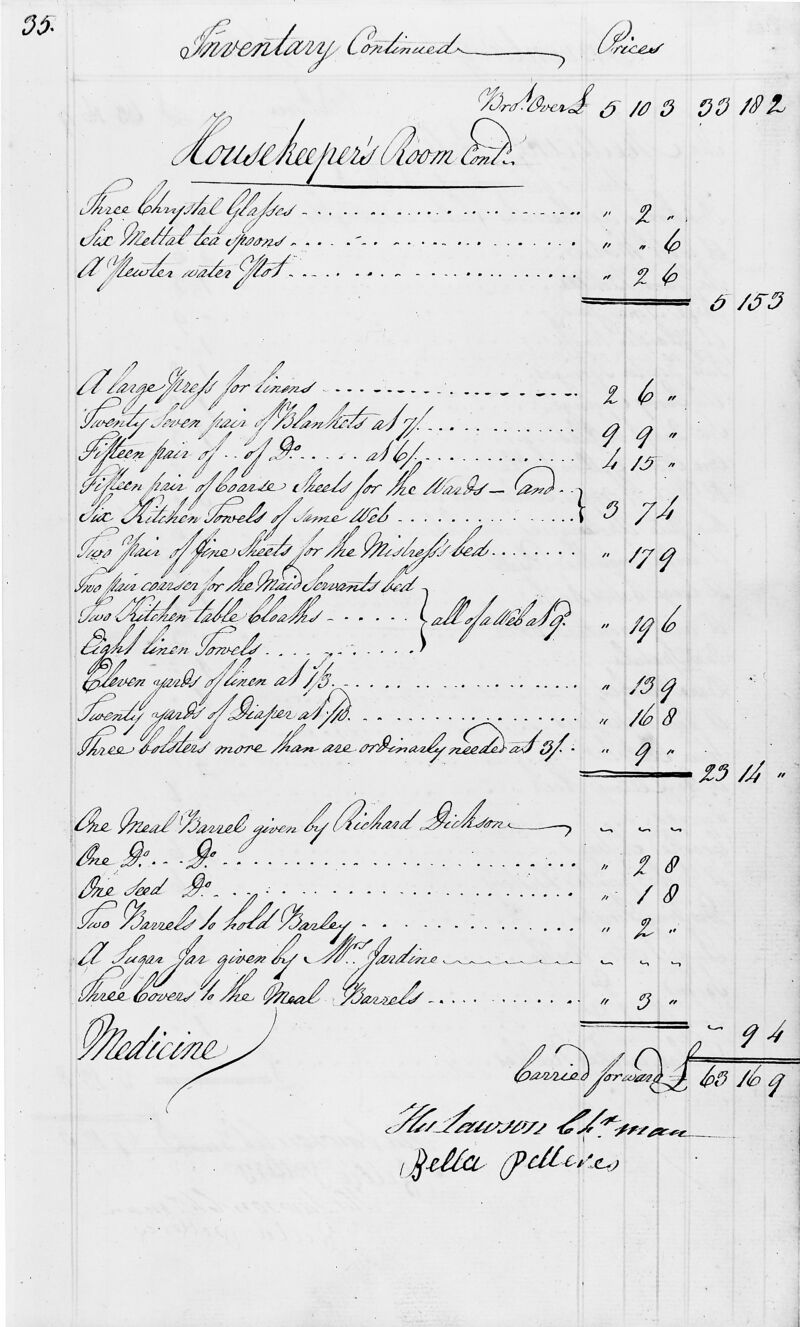 35.
Inventary Continued Prices
Bro.t Over £ 5 10 3 33 18 2
Housekeeper's Room Cont.d
Three Chrystal Glasses " 2 "
Six Mettal tea spoons " " 6
A Pewter water Pot " 2 6
5 15 3
A large Press for linens 2 6 "
Twenty Seven pair of Blankets at 7/. 9 9 "
Fifteen pair of .. of D.o at 6/. 4 15 "
Fifteen pair of Coarse Sheets for the Wards — and
Six Kitchen Towels of same Web } 3 7 4
Two Pair of fine Sheets for the Mistress's bed " 17 9
Two pair coarser for the Maid Servants bed
Two Kitchen table Cloaths } all of a Web at 9.d " 19 6
Eight linen Towels
Eleven yards of linen at 1/3 " 13 9
Twenty yards of Diaper at /10. " 16 8
Three bolsters more than are ordinarly needed at 3/. " 9 "
23 14 "
One Meal Barrel given by Richard Dickson " " "
One D.o D.o " 2 8
One seed D.o " 1 8
Two Barrels to hold Barley " 2 "
A Sugar Jar given by M.rs Jardine " " "
Three Covers to the Meal Barrels " 3 "
" 9 4
Medicine
Carried forward £ 63 16 9
Hu Lawson Ch.r man
Bella